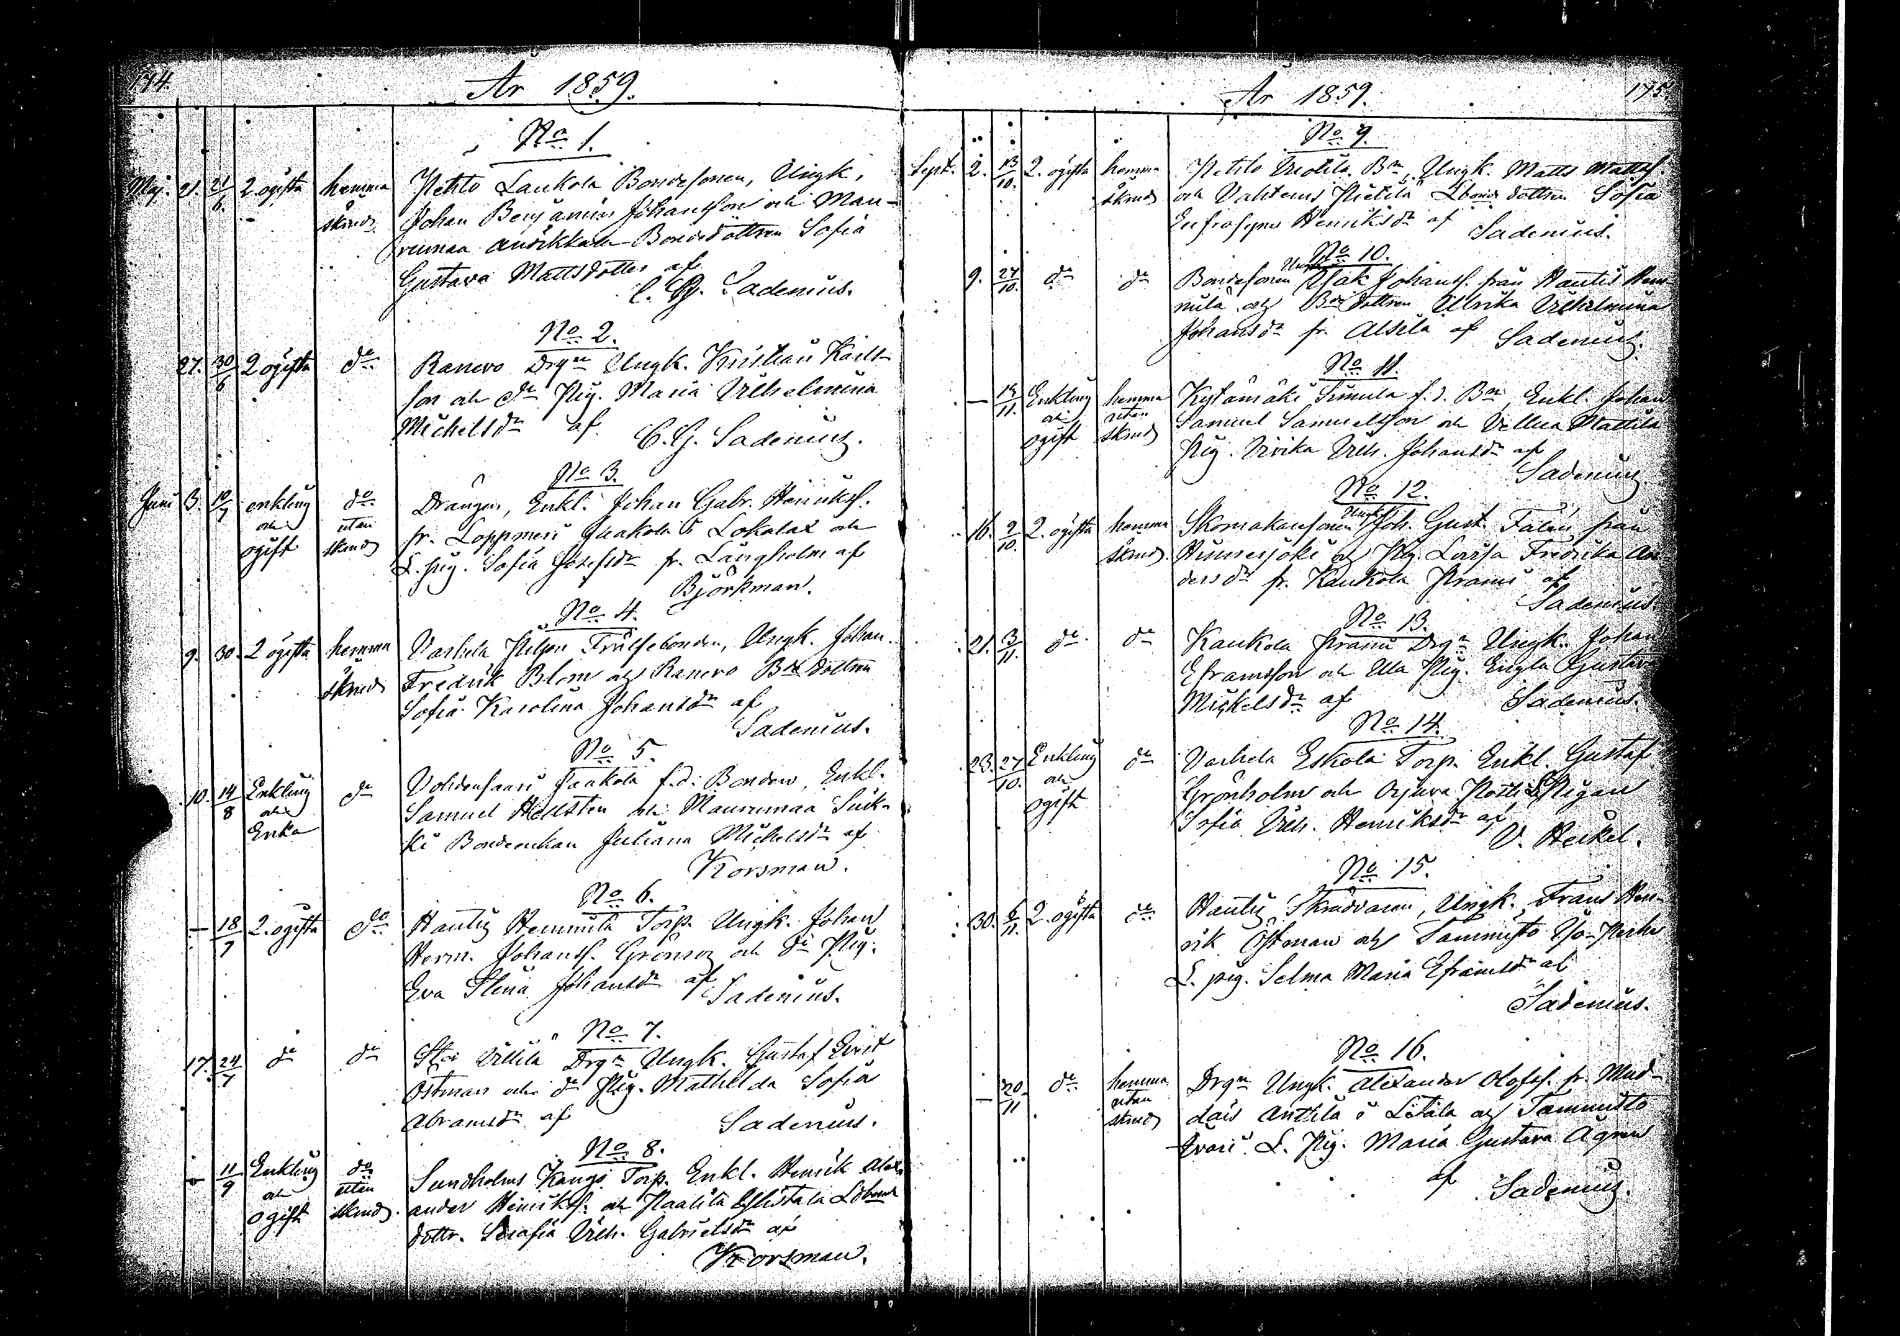 174.
År 1859.
No 1.
Maj. 21. 21/6. 2 ogifta hemma skrud. Pehto Laukola Bondesonen, Ungk.
Johan Benjamin Johansson och Mau-
rumaa Andikkala Bondedottren Sofia
Gustava Mattsdotter af
C. G. Sadenius.
No 2.
27. 30/6 2 ogifta do Ranevo Drgen Ungk. Kristian Karls-
son och do Pig. Maria Vilhelmina
Michelsdr af C. G. Sadenius.
No 3.
Juni 3. 10/7 enkling och ogift do utan skrud Drängen, Enkl. Johan Gabr. Henriksf.
fr. Loppmeri Jaakola i Lokalax och
L. pig. Sofia Josefsdr fr. Langholm af
Björkman.
No 4.
9. 30. 2 ogifta hemma skrud Varhela Frälsebonden, Ungk. Johan
Fredrik Blom och Ranevo Bde dottren
Sofia Karolina Johansdr af
Sadenius.
No 5.
10. 14/8 Enkling och Enka do Jaakola f.d. Bonden, Enkl.
Samuel Hellsten och Maurumaa Suik-
ki Bondeenkan Juliana Michelsdr af
Korsman.
No 6.
— 18/7 2. ogifta do Hautis Hemmilä Torp. Ungk. Johan
Herm. Johansf. Grönroos och do Pig.
Eva Stina Johansdr af Sadenius.
No 7.
17. 24/7 do do Villilä Drgn Ungk. Gustaf Evert
Östman och do Pig. Mathilda Sofia
Abramsdr af Sadenius.
No 8.
— 11/9 Enkling och ogift do utan skrud. Sundholms Kangs Torp. Enkl. Henrik Alex-
ander Henriksf. och Kaalila
dottr. Serafia Vilh. Gabrielsdr af
Korsman.
År 1859.
175.
No. 9.
Sept. 2. 13/10. 2. ogifta hemma skrud Pehto Bn, Ungk. Matts Mattsf.
och Valtens Pietilä dottren Sofia
Eufrosyne Henriksdr af Sadenius.
No 10.
9. 27/10. do do Bondesonen Ungk. Isak Johansf. från Hautis Hem-
milä och Bde dottren Ulrika Vilhelmina
Johansdr fr. Alsila af Sadenius.
No 11.
— 13/11. Enkling och ogift hemma utan skrud Kylänmäki Simula f.d. Bn Enkl. Johan
Samuel Samuelsson och Villua Mattila
Pig. Vivika Vilh. Johansdr af
Sadenius.
No 12.
16. 2/10. 2. ogifta hemma skrud. Skomakaresonen Ungk. Joh. Gust. Falén från
Hinnerjoki och Pig. Lovisa Fredrika An-
dersdr fr. Kaukola Prami af
Sadenius.
No 13.
21. 3/11. do do Kaukola Prami Drgn Ungk. Johan
Eframsson och Ulla Pig. Engla Gustava
Mickelsdr af Sadenius.
No 14.
23. 27/10. Enkling och ogift do Varhela Eskola Torp. Enkl. Gustaf
Grönholm och Orjava Potti L. Pigan
Sofia Vilh. Henriksdr af
V. Heikel.
No 15.
30. 6/11. 2. ogifta do Hautis Skräddaren, Ungk. Frans Hen-
rik Östman och Tammisto Yö-Perhe
L. pig. Selma Maria Eframsdr af
Sadenius.
No 16.
— 20/11 do hemma utan skrud Drgn Ungk. Alexander Olofsf. fr. Mud-
dais Anttila i Letala och Tammisto
Ivari L. Pig. Maria Gustava Ågren
af Sadenius.